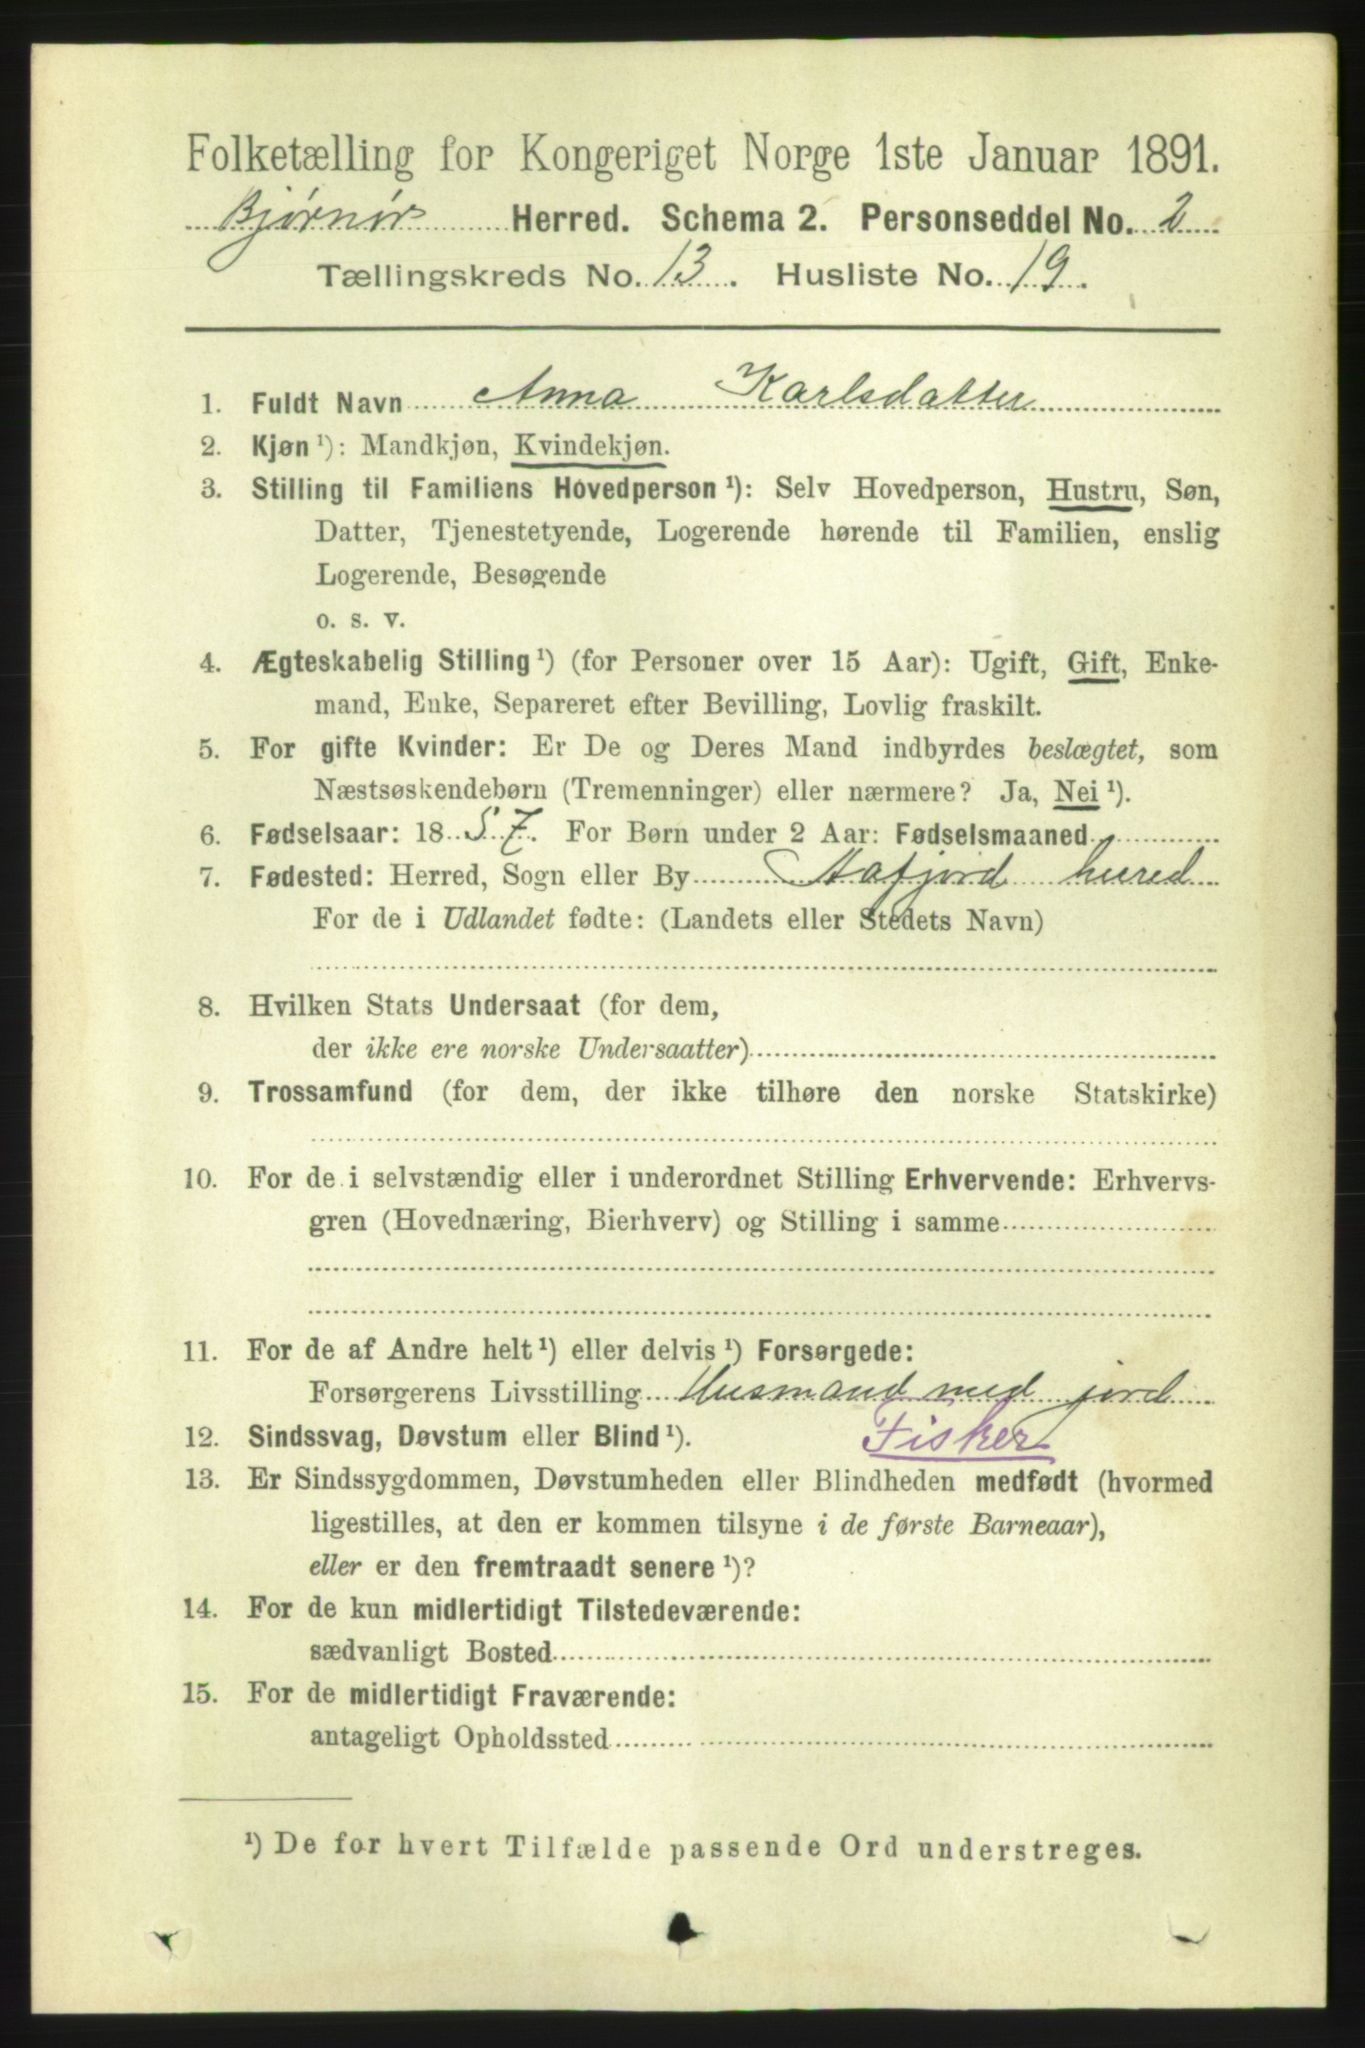 Folketælling for Kongeriget Norge 1ste Januar 1891.
Bjørnør Herred. Schema 2. Personseddel No. 2
Tællingskreds No. 13. Husliste No. 19.
1. Fuldt Navn Anna Karlsdatter
2. Kjøn ¹): Mandkjøn, Kvindekjøn.
3. Stilling til Familiens Hovedperson ¹): Selv Hovedperson, Hustru, Søn,
Datter, Tjenestetyende, Logerende hørende til Familien, enslig
Logerende, Besøgende
o. s. v.
4. Ægteskabelig Stilling ¹) (for Personer over 15 Aar): Ugift, Gift, Enke-
mand, Enke, Separeret efter Bevilling, Lovlig fraskilt.
5. For gifte Kvinder: Er De og Deres Mand indbyrdes beslægtet, som
Næstsøskendebørn (Tremenninger) eller nærmere? Ja, Nei ¹).
6. Fødselsaar: 1857. For Børn under 2 Aar: Fødselsmaaned
7. Fødested: Herred, Sogn eller By Aafjord herred
For de i Udlandet fødte: (Landets eller Stedets Navn)
8. Hvilken Stats Undersaat (for dem,
der ikke ere norske Undersaatter)
9. Trossamfund (for dem, der ikke tilhøre den norske Statskirke)
10. For de i selvstændig eller i underordnet Stilling Erhvervende: Erhvervs-
gren (Hovednæring, Bierhverv) og Stilling i samme
11. For de af Andre helt ¹) eller delvis ¹) Forsørgede:
Forsørgerens Livsstilling Husmand med jord
12. Sindssvag, Døvstum eller Blind ¹). Fisker
13. Er Sindssygdommen, Døvstumheden eller Blindheden medfødt (hvormed
ligestilles, at den er kommen tilsyne i de første Barneaar),
eller er den fremtraadt senere ¹)?
14. For de kun midlertidigt Tilstedeværende:
sædvanligt Bosted
15. For de midlertidigt Fraværende:
antageligt Opholdssted
¹) De for hvert Tilfælde passende Ord understreges.